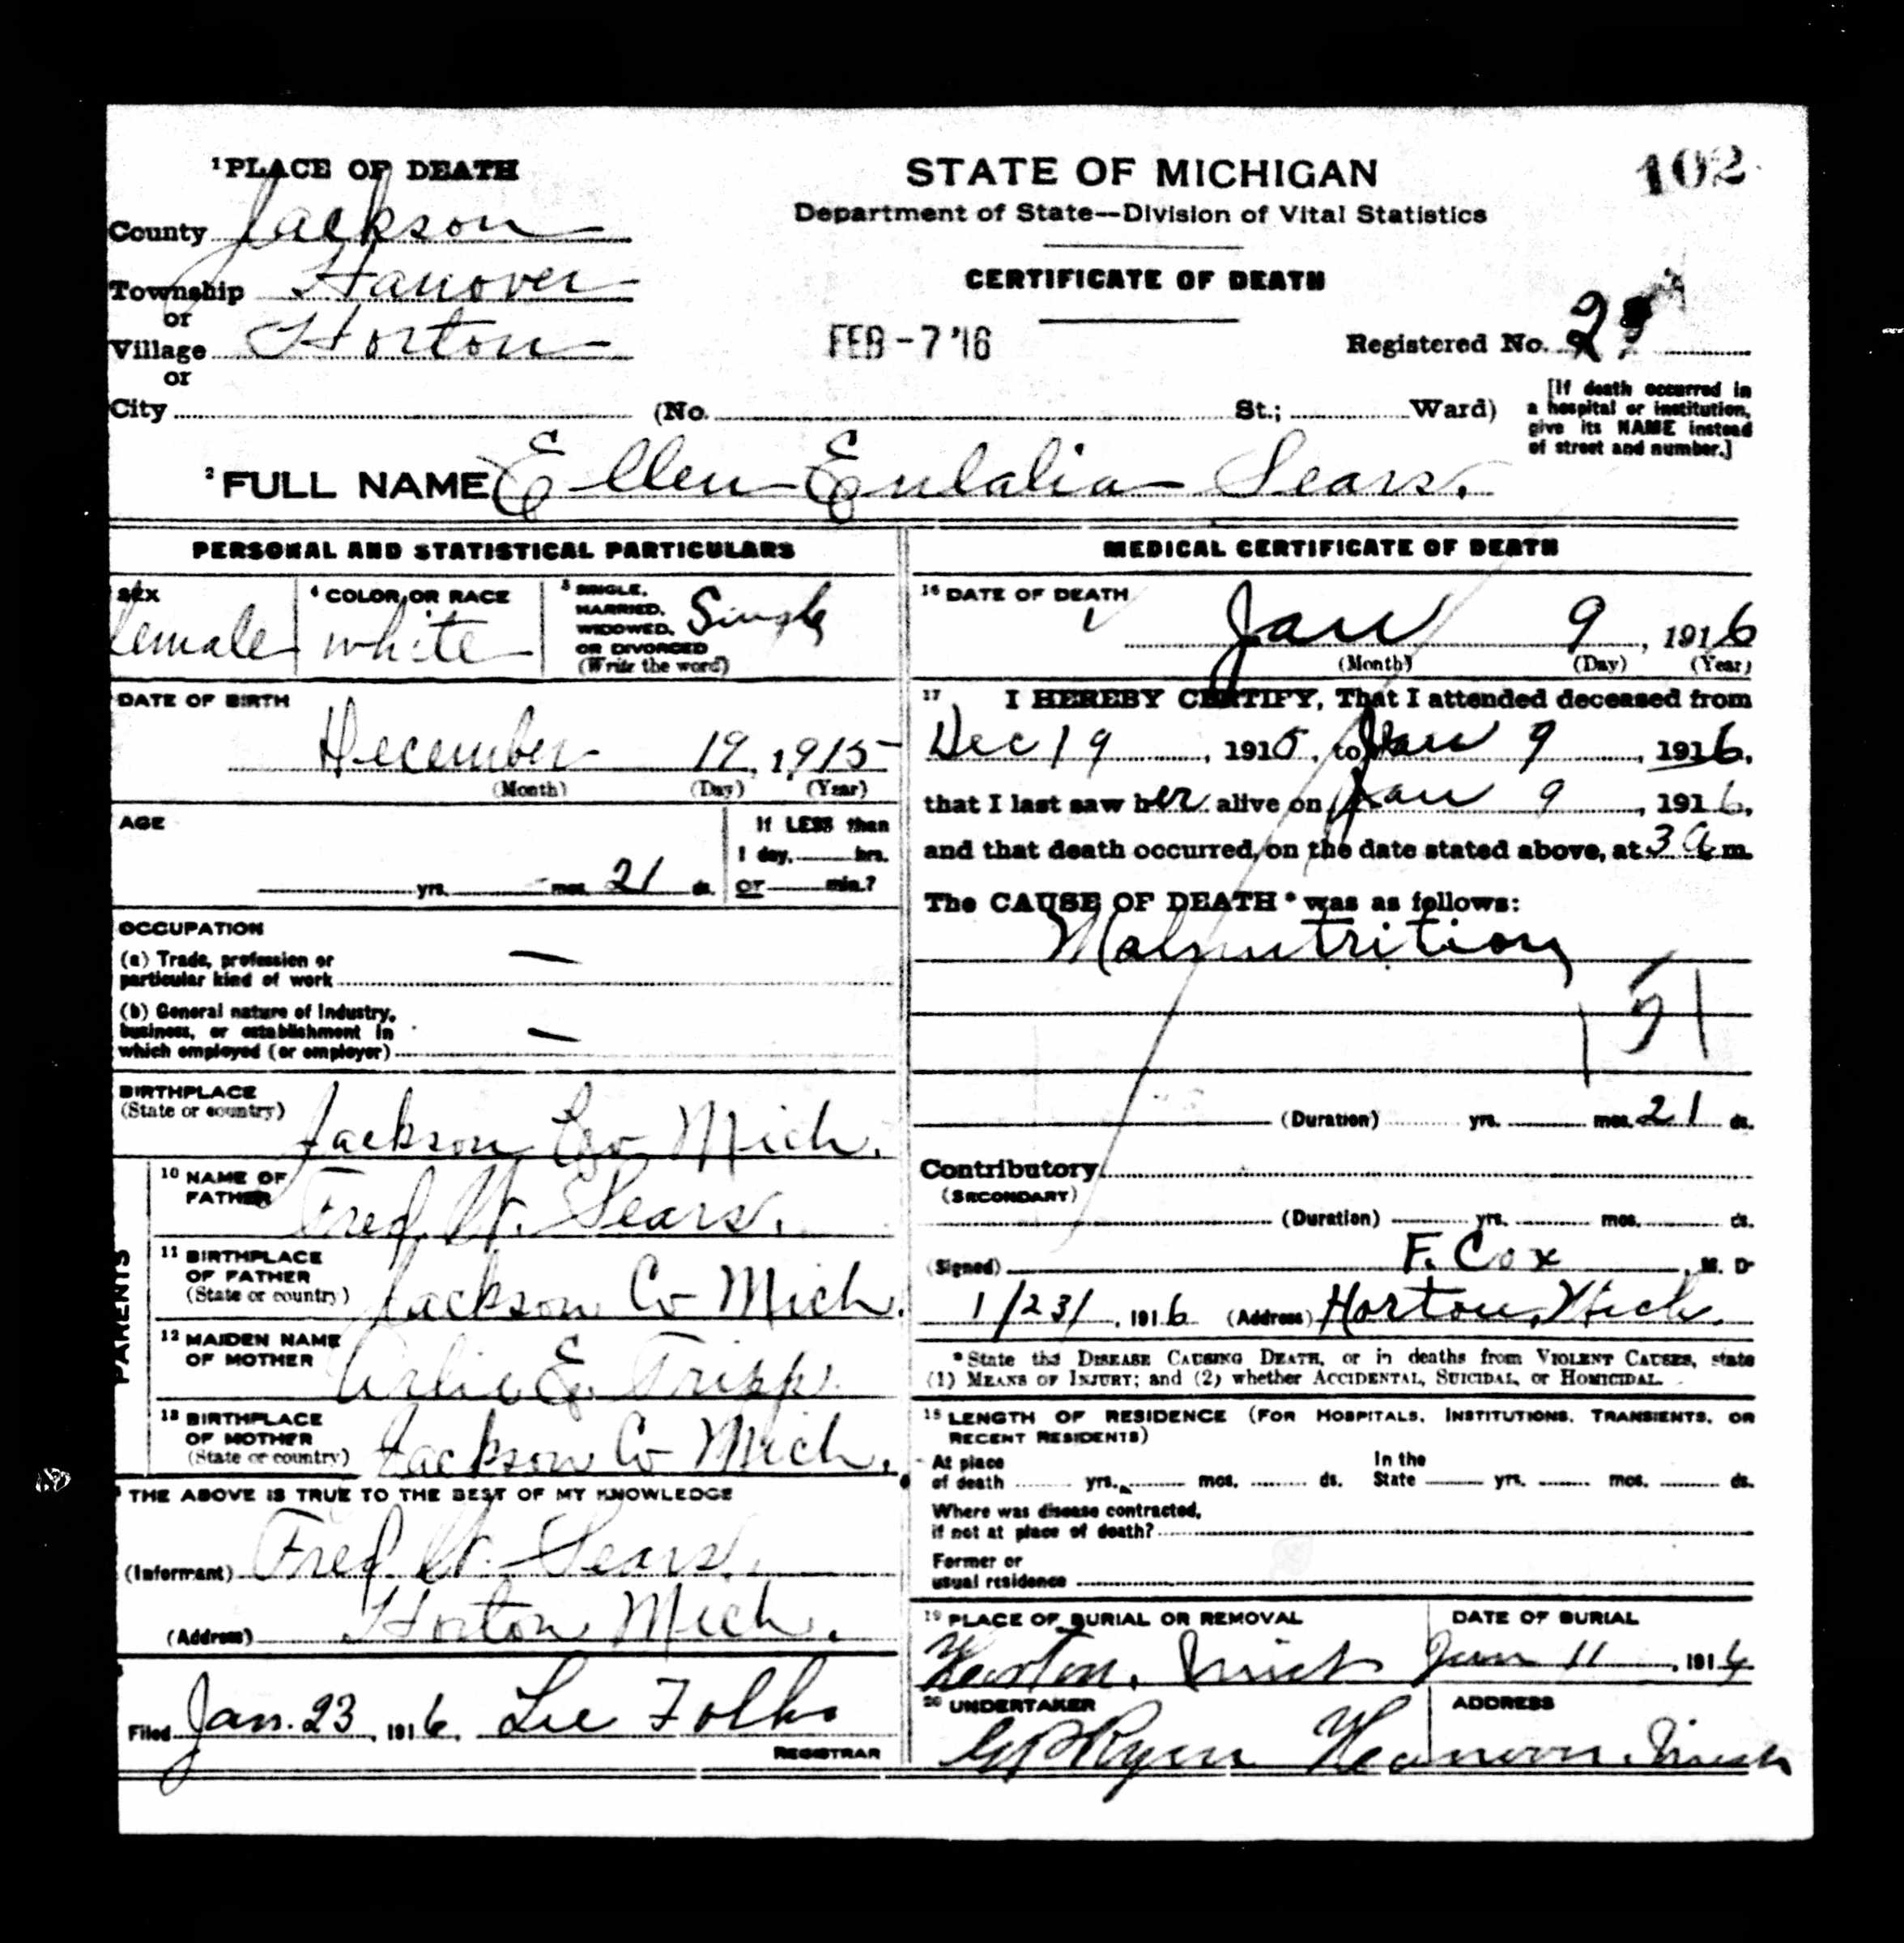 102
¹PLACE OF DEATH
STATE OF MICHIGAN
Department of State—Division of Vital Statistics
County Jackson
Township Hanover
or
Village Horton
or
City (No. St.; Ward)
CERTIFICATE OF DEATH
FEB -7 '16
Registered No. 2
[If death occurred in
a hospital or institution,
give its NAME instead
of street and number.]
² FULL NAME Ellen Eulalia Sears.
PERSONAL AND STATISTICAL PARTICULARS
SEX
female
⁴ COLOR OR RACE
white
⁵ SINGLE,
MARRIED,
WIDOWED,
OR DIVORCED
(Write the word)
Single
DATE OF BIRTH
December 19, 1915
(Month) (Day) (Year)
AGE
yrs. – mos. 21 ds.
If LESS than
1 day, hrs.
or min.?
OCCUPATION
(a) Trade, profession or
particular kind of work —
(b) General nature of Industry,
business, or establishment in
which employed (or employer) —
BIRTHPLACE
(State or country)
Jackson Co Mich.
PARENTS
¹⁰ NAME OF
FATHER
Fred W. Sears.
¹¹ BIRTHPLACE
OF FATHER
(State or country)
Jackson Co Mich.
¹² MAIDEN NAME
OF MOTHER
Arlie E. Tripp.
¹³ BIRTHPLACE
OF MOTHER
(State or country)
Jackson Co Mich.
THE ABOVE IS TRUE TO THE BEST OF MY KNOWLEDGE
(Informant) Fred W. Sears.
(Address) Horton Mich.
Filed Jan. 23, 1916. Lee Folks
REGISTRAR
MEDICAL CERTIFICATE OF DEATH
¹⁶ DATE OF DEATH
Jan 9, 1916
(Month) (Day) (Year)
¹⁷ I HEREBY CERTIFY, That I attended deceased from
Dec 19, 1915, to Jan 9, 1916,
that I last saw her alive on Jan 9, 1916,
and that death occurred, on the date stated above, at 3 a m.
The CAUSE OF DEATH * was as follows:
Malnutrition
(Duration) yrs. mos. 21 ds.
Contributory
(SECONDARY)
(Duration) yrs. mos. ds.
(Signed) F. Cox, M. D.
1/23/, 1916 (Address) Horton, Mich.
*State the DISEASE CAUSING DEATH, or in deaths from VIOLENT CAUSES, state
(1) MEANS OF INJURY; and (2) whether ACCIDENTAL, SUICIDAL, or HOMICIDAL.
¹⁸ LENGTH OF RESIDENCE (FOR HOSPITALS, INSTITUTIONS, TRANSIENTS, OR
RECENT RESIDENTS)
At place
of death yrs. mos. ds.
In the
State yrs. mos. ds.
Where was disease contracted,
if not at place of death?
Former or
usual residence
¹⁹ PLACE OF BURIAL OR REMOVAL
Horton, Mich
DATE OF BURIAL
Jan 11, 1916
²⁰ UNDERTAKER
ADDRESS
Hanover, Mich